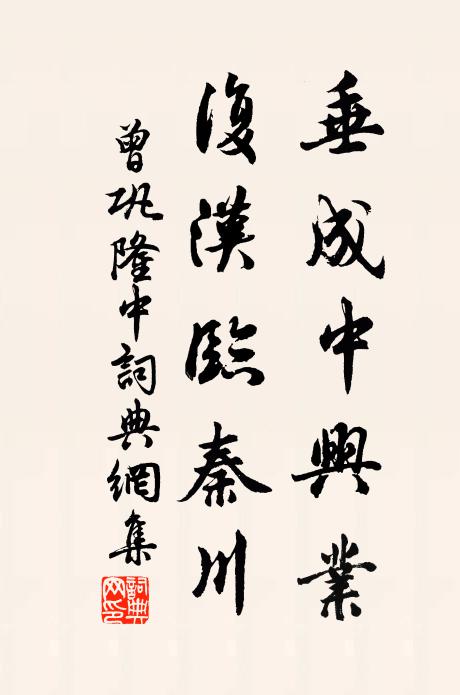 垂成中興業
復漢臨秦川
曾巩隆中詞典網集
詞典網印